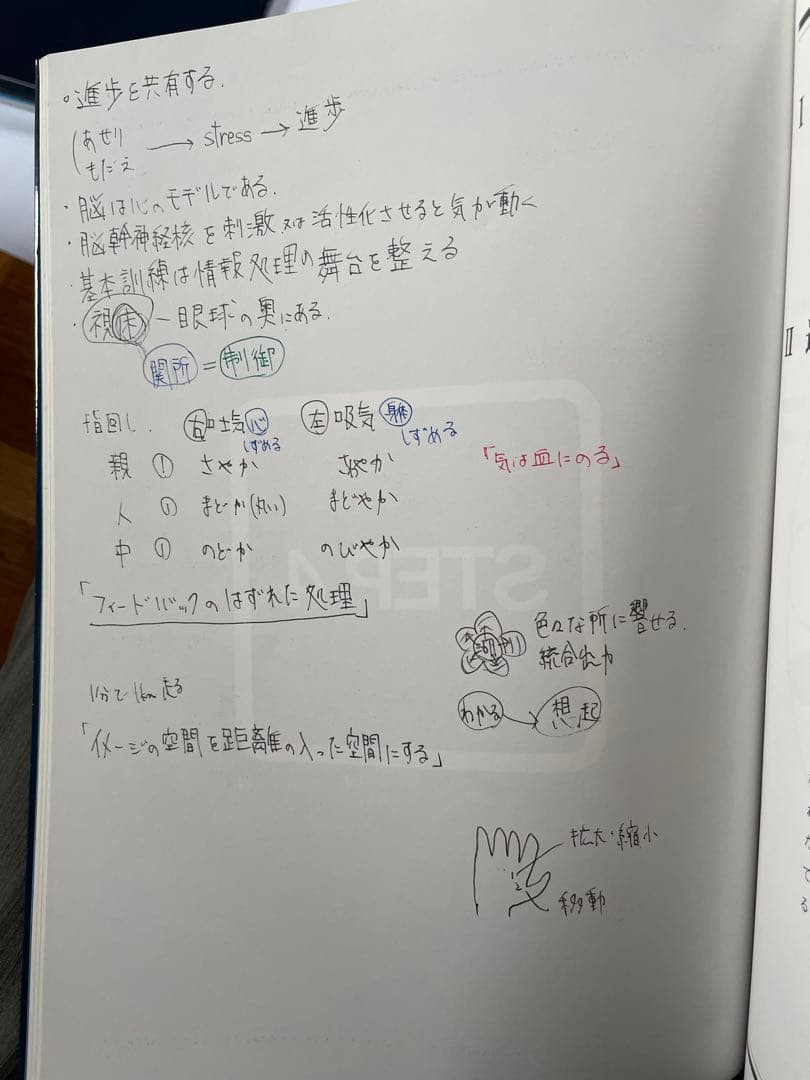 。進歩を共有する.
(あせり
もだえ → stress → 進歩
・脳は心のモデルである.
・脳幹神経核を刺激又は活性化させると気が動く
・基本訓練は情報処理の舞台を整える
・視床 ー 眼球の奥にある.
関所 = 制御
指回し. 右 吐気 心 左 吸気 身体
しずめる しずめる
親 ① さやか さわやか
「気は血にのる」
人 ① まどか(丸い) まどやか
中 ① のどか のびやか
「フィードバックのはずれた処理」
色々な所に響せる.
統合出力
1分で1km走る
わかる → 想起
「イメージの空間を距離の入った空間にする」
拡大・縮小
移動
STEP 4
I
II
る